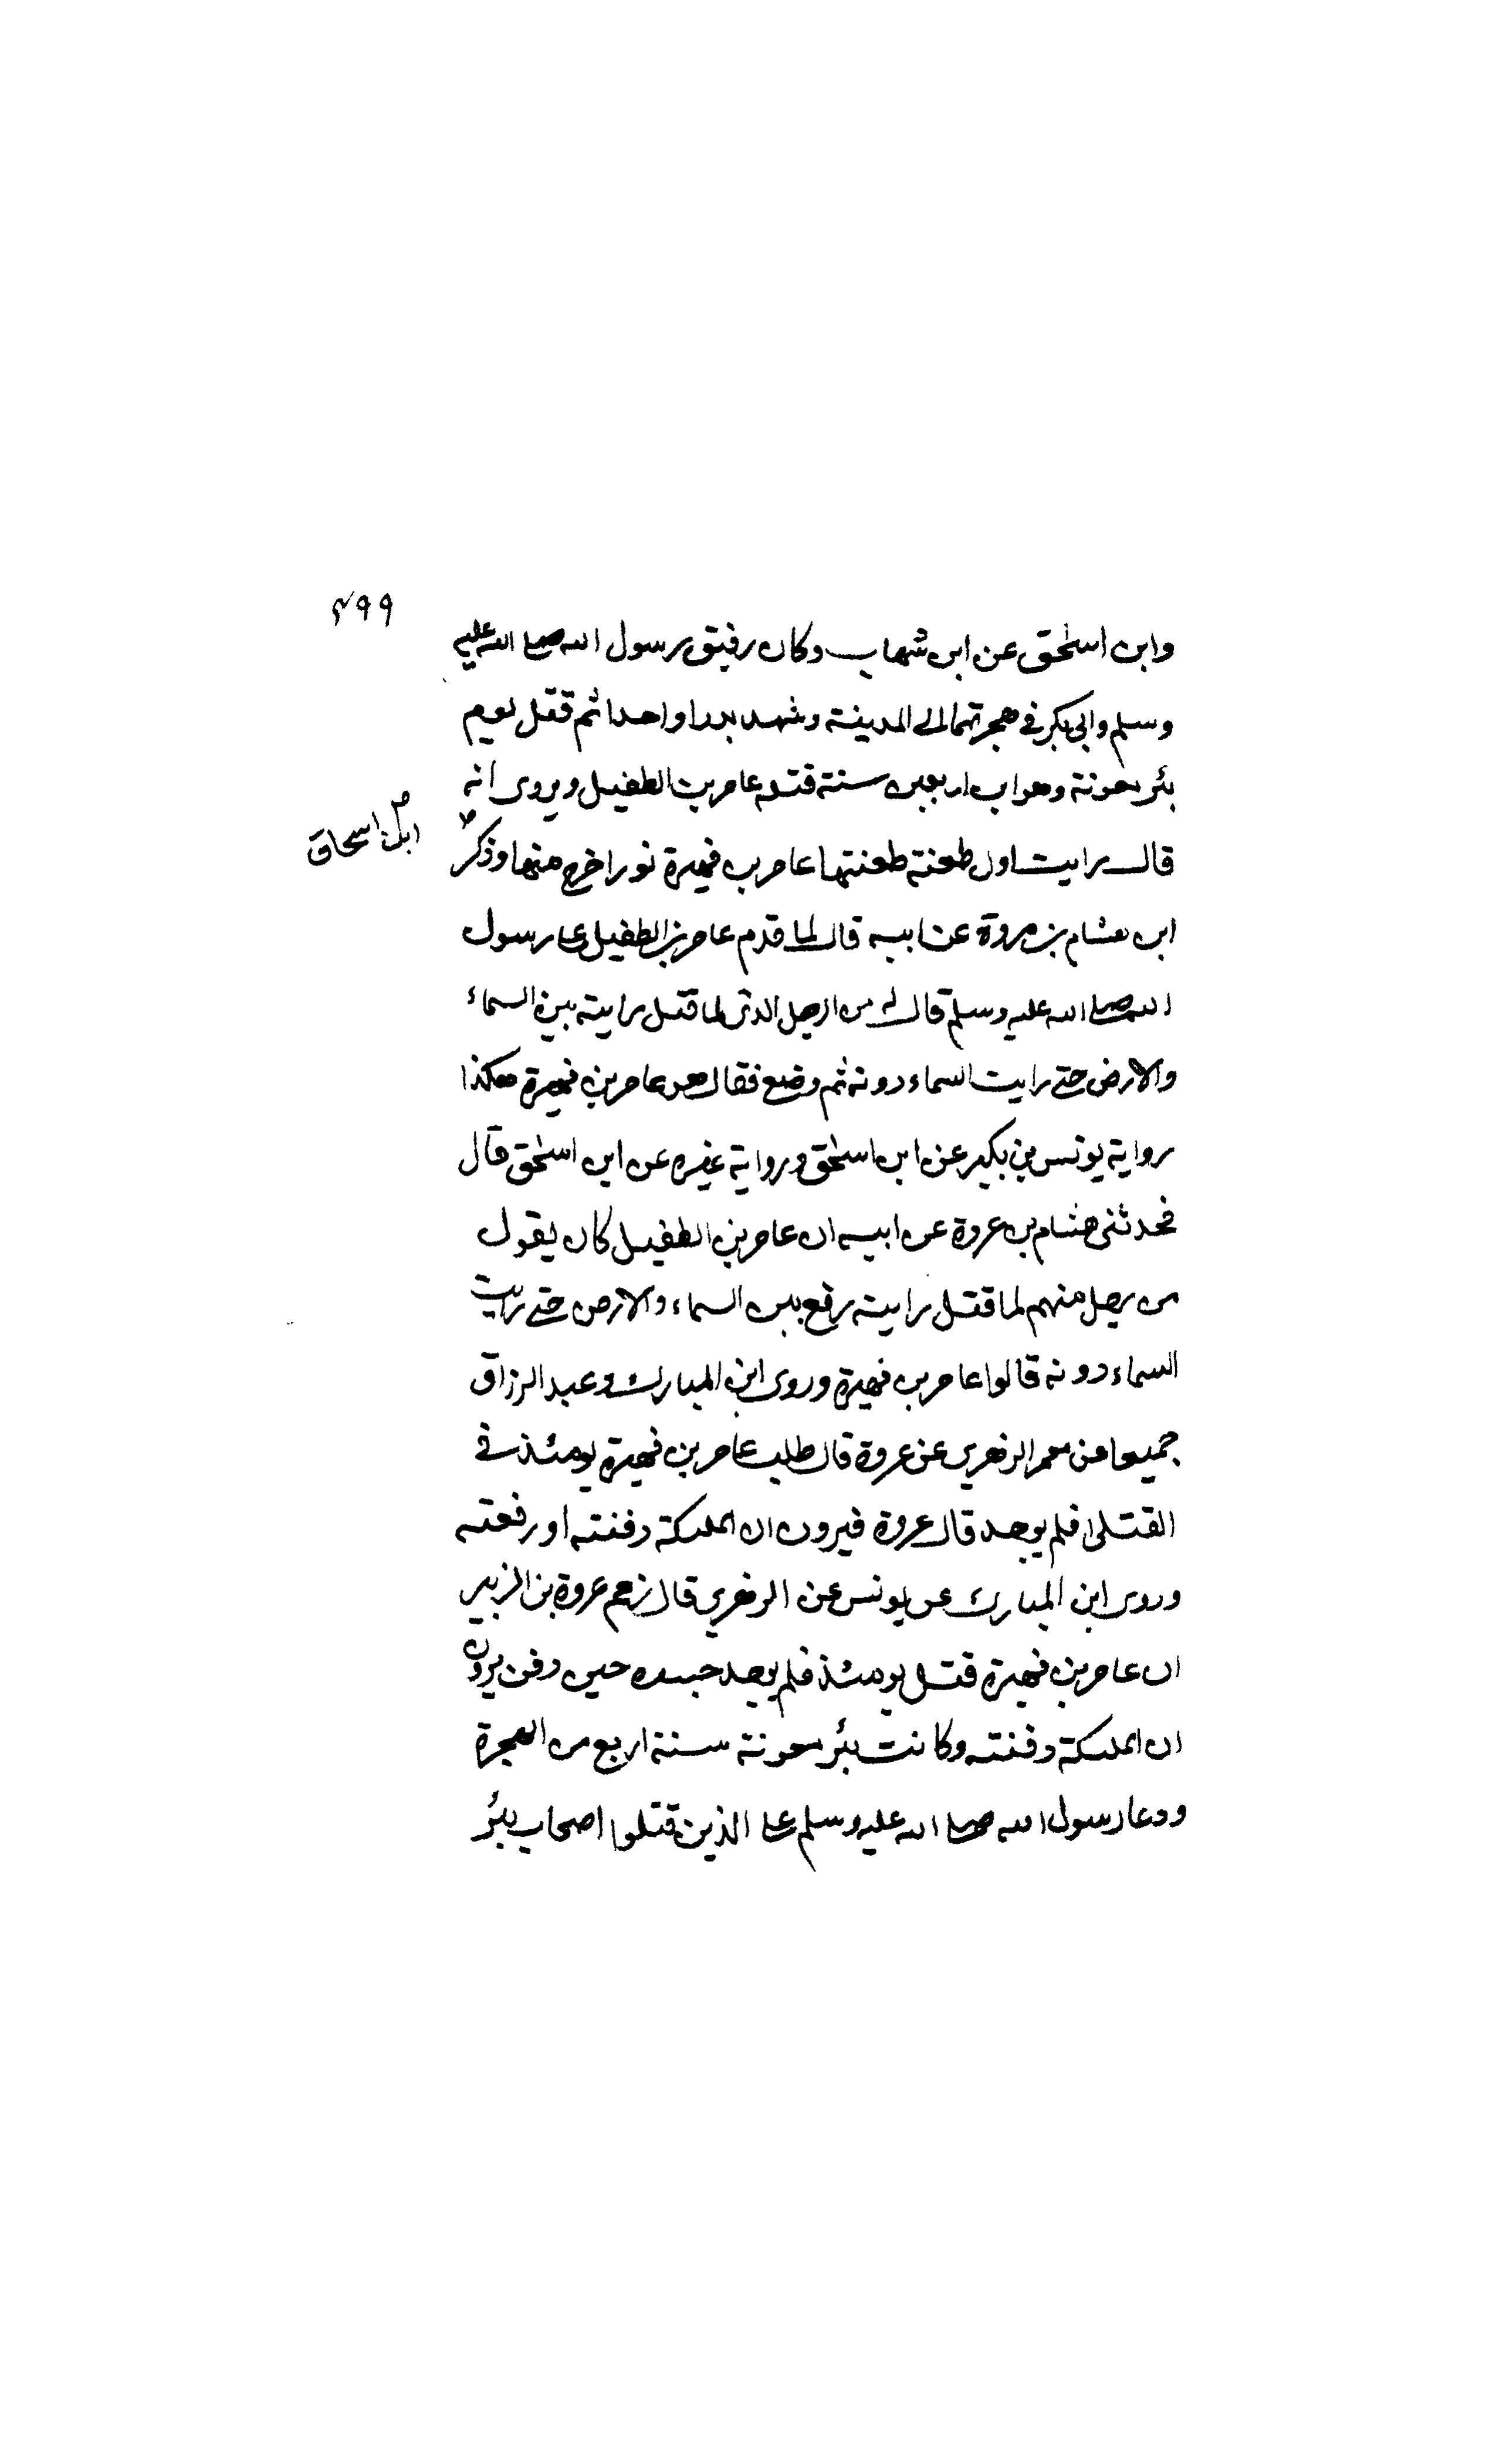 ٤٩٩
وابن اسحٰق عن ابن شهاب وكان رفيق رسول الله صلى الله عليه
وسلم وابي بكر في هجرتهما الى المدينة وشهد بدرا واحدا ثم قتل يوم
بئر معونة وهو ابن اربعين سنة قتله عامر بن الطفيل ويروى انه
قال رايت اول طعنة طعنتها عامر بن فهيرة نورا خرج منها وذكر
ابن اسحاق
ابن هشام بن عروة عن ابيه قال لما قدم عامر بن الطفيل على رسول
الله صلى الله عليه وسلم قال له من الرجل الذى لما قتل رايته بين السماء
والارض حتى رايت السماء دونه ثم وضع فقال هو عامر بن فهيرة هكذا
رواية يونس بن بكير عن ابن اسحٰق ورواية غيره عن ابن اسحٰق قال
فحدثنى هشام بن عروة عن ابيه ان عامر بن الطفيل كان يقول
من رجل منهم لما قتل رايته رفع بين السماء والارض حتى رايت
السماء دونه قالوا عامر بن فهيرة وروى ابن المبارك وعبد الرزاق
جميعا عن معمر الزهري عن عروة قال طلب عامر بن فهيرة يومئذ في
القتلى فلم يوجد قال عروة فيرون ان الملئكة دفنته او رفعته
وروى ابن المبارك عن يونس عن الزهري قال زعم عروة بن الزبير
ان عامر بن فهيرة قتل يومئذ فلم يوجد جسده حين دفن يرون
ان الملئكة دفنته وكانت بئر معونة سنة اربع من الهجرة
ودعا رسول الله صلى الله عليه وسلم على الذين قتلوا اصحاب بئر